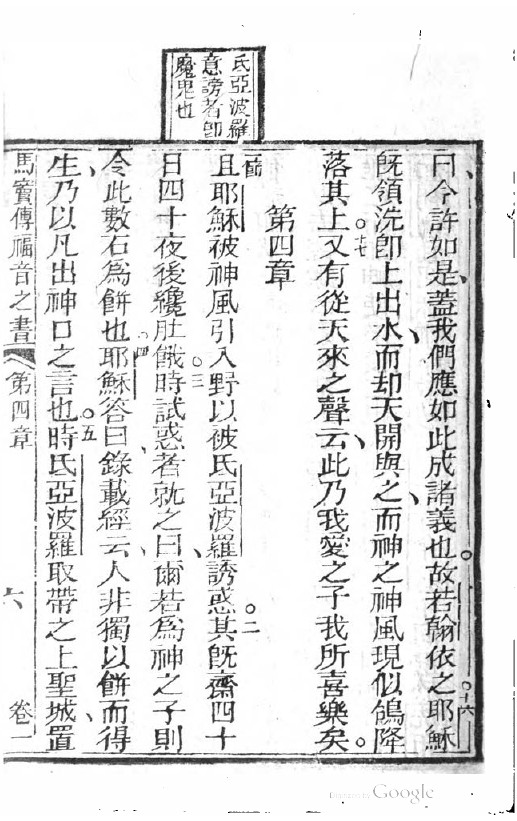 氏亞波羅
意謗者卽
魔鬼也
曰今許如是蓋我們應如此成諸義也。故若翰依之耶穌
旣領洗卽上出水而却天開與之而神之神風現似鴿降
落其上。又有從天來之聲云此乃我愛之子我所喜樂矣。
第四章
且耶穌被神風引入野以被氏亞波羅誘惑。其旣齋四十
日四十夜後纔肚餓。時試惑者就之曰爾若為神之子則
令此數石為餅也。耶穌答曰錄載經云人非獨以餅而得
生乃以凡出神口之言也。時氐亞波羅取帶之上聖城置
馬竇傳福音之書 第四章 六 卷一
Digitized by Google